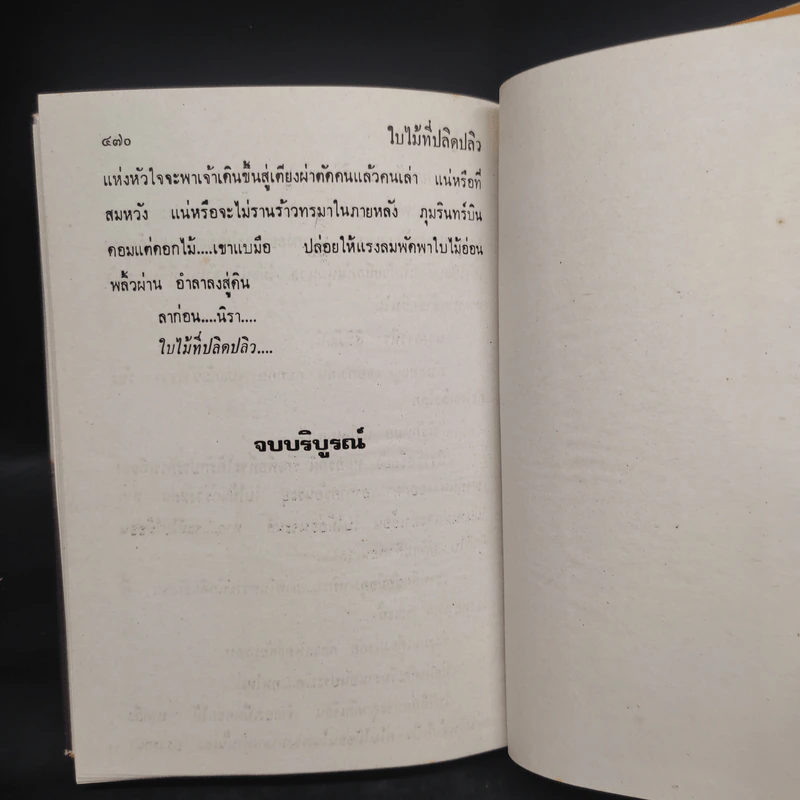 ๔๗๐ ใบไม้ที่ปลิดปลิว
แห่งหัวใจจะพาเจ้าเดินขึ้นสู่เตียงผ่าตัดคนแล้วคนเล่า แน่หรือที่
สมหวัง แน่หรือจะไม่รานร้าวทรมาในภายหลัง ภุมรินทร์บิน
ดอมแต่ดอกไม้....เขาแบมือ ปล่อยให้แรงลมพัดพาใบไม้อ่อน
พลิ้วผ่าน อำลาลงสู่ดิน
ลาก่อน....นิรา....
ใบไม้ที่ปลิดปลิว....
จบบริบูรณ์